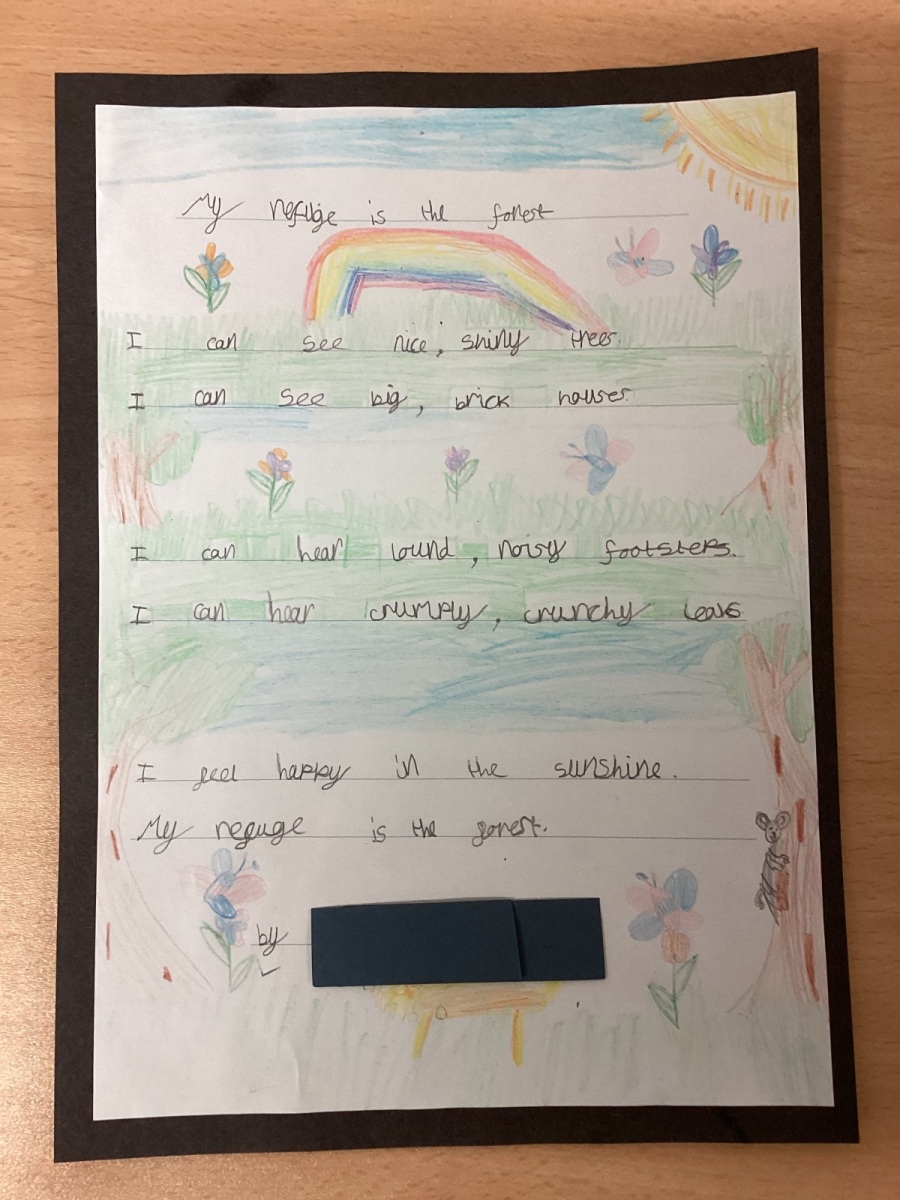 My refuge is the forest
I can see nice, shiny trees.
I can see big, brick houses.
I can hear lound, noisy footsteps.
I can hear crumply, crunchy leavs
I feel happy in the sunshine.
My refuge is the forest.
by